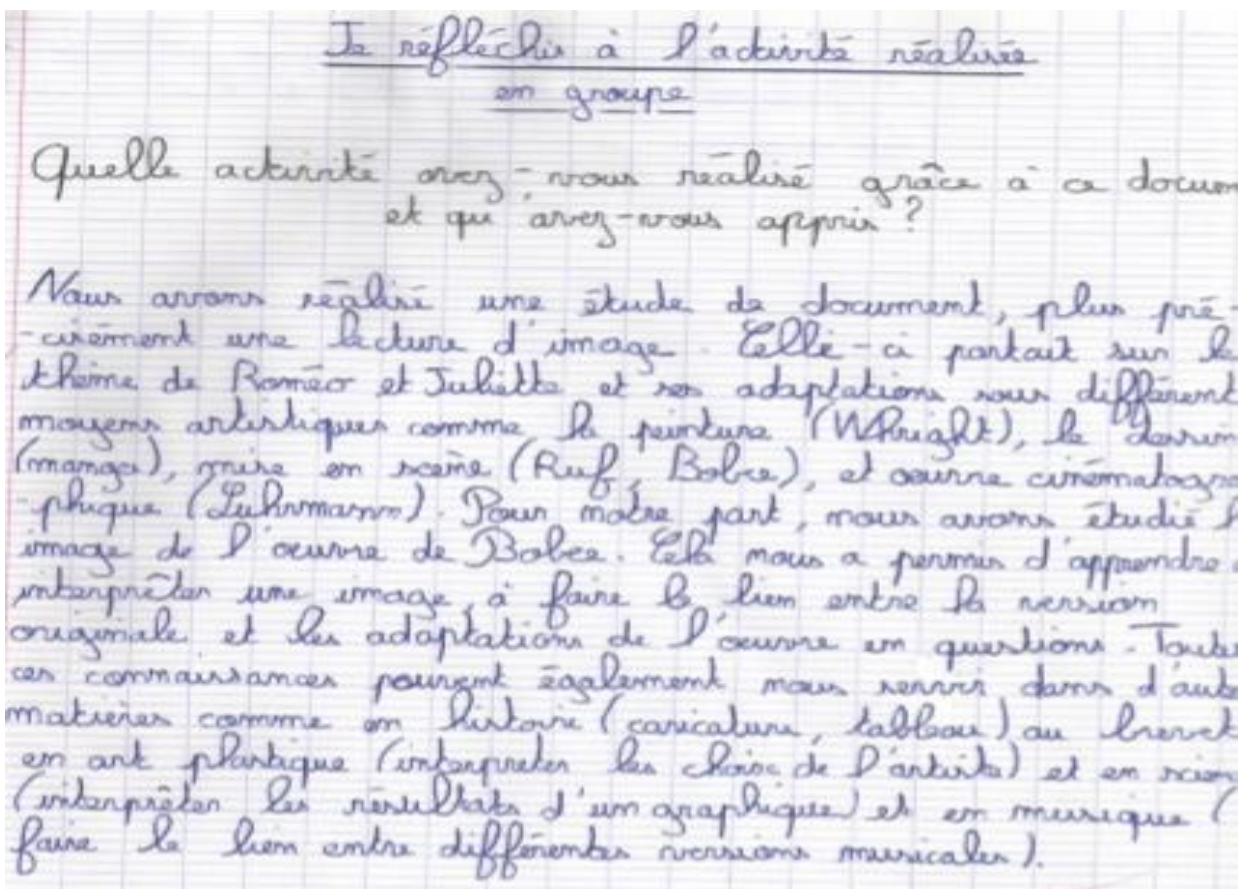 Je réfléchis à l'activité réalisée
en groupe
Quelle activité avez-vous réalisé grâce à ce docum
et qu'avez-vous appris ?
Nous avons réalisé une étude de document, plus pré-
-cisément une lecture d'image. Celle-ci portait sur le
thème de Roméo et Juliette et ses adaptations sous différent
moyens artistiques comme la peinture (Whright), le dessin
(manga), mise en scène (Ruf, Bobee), et oeuvre cinématogra
-phique (Luhrmann). Pour notre part, nous avons étudié l
image de l'oeuvre de Bobee. Celà nous a permis d'apprendre
interprèter une image, à faire le lien entre la version
originale et les adaptations de l'oeuvre en questions. Toute
ces connaissances peuvent également nous servir dans d'aut
matières comme en histoire (caricature, tableau) au brevet
en art plastique (interpreter les choix de l'artiste) et en scien
(interprèter les résultats d'un graphique) et en musique (
faire le lien entre différentes versions musicales).